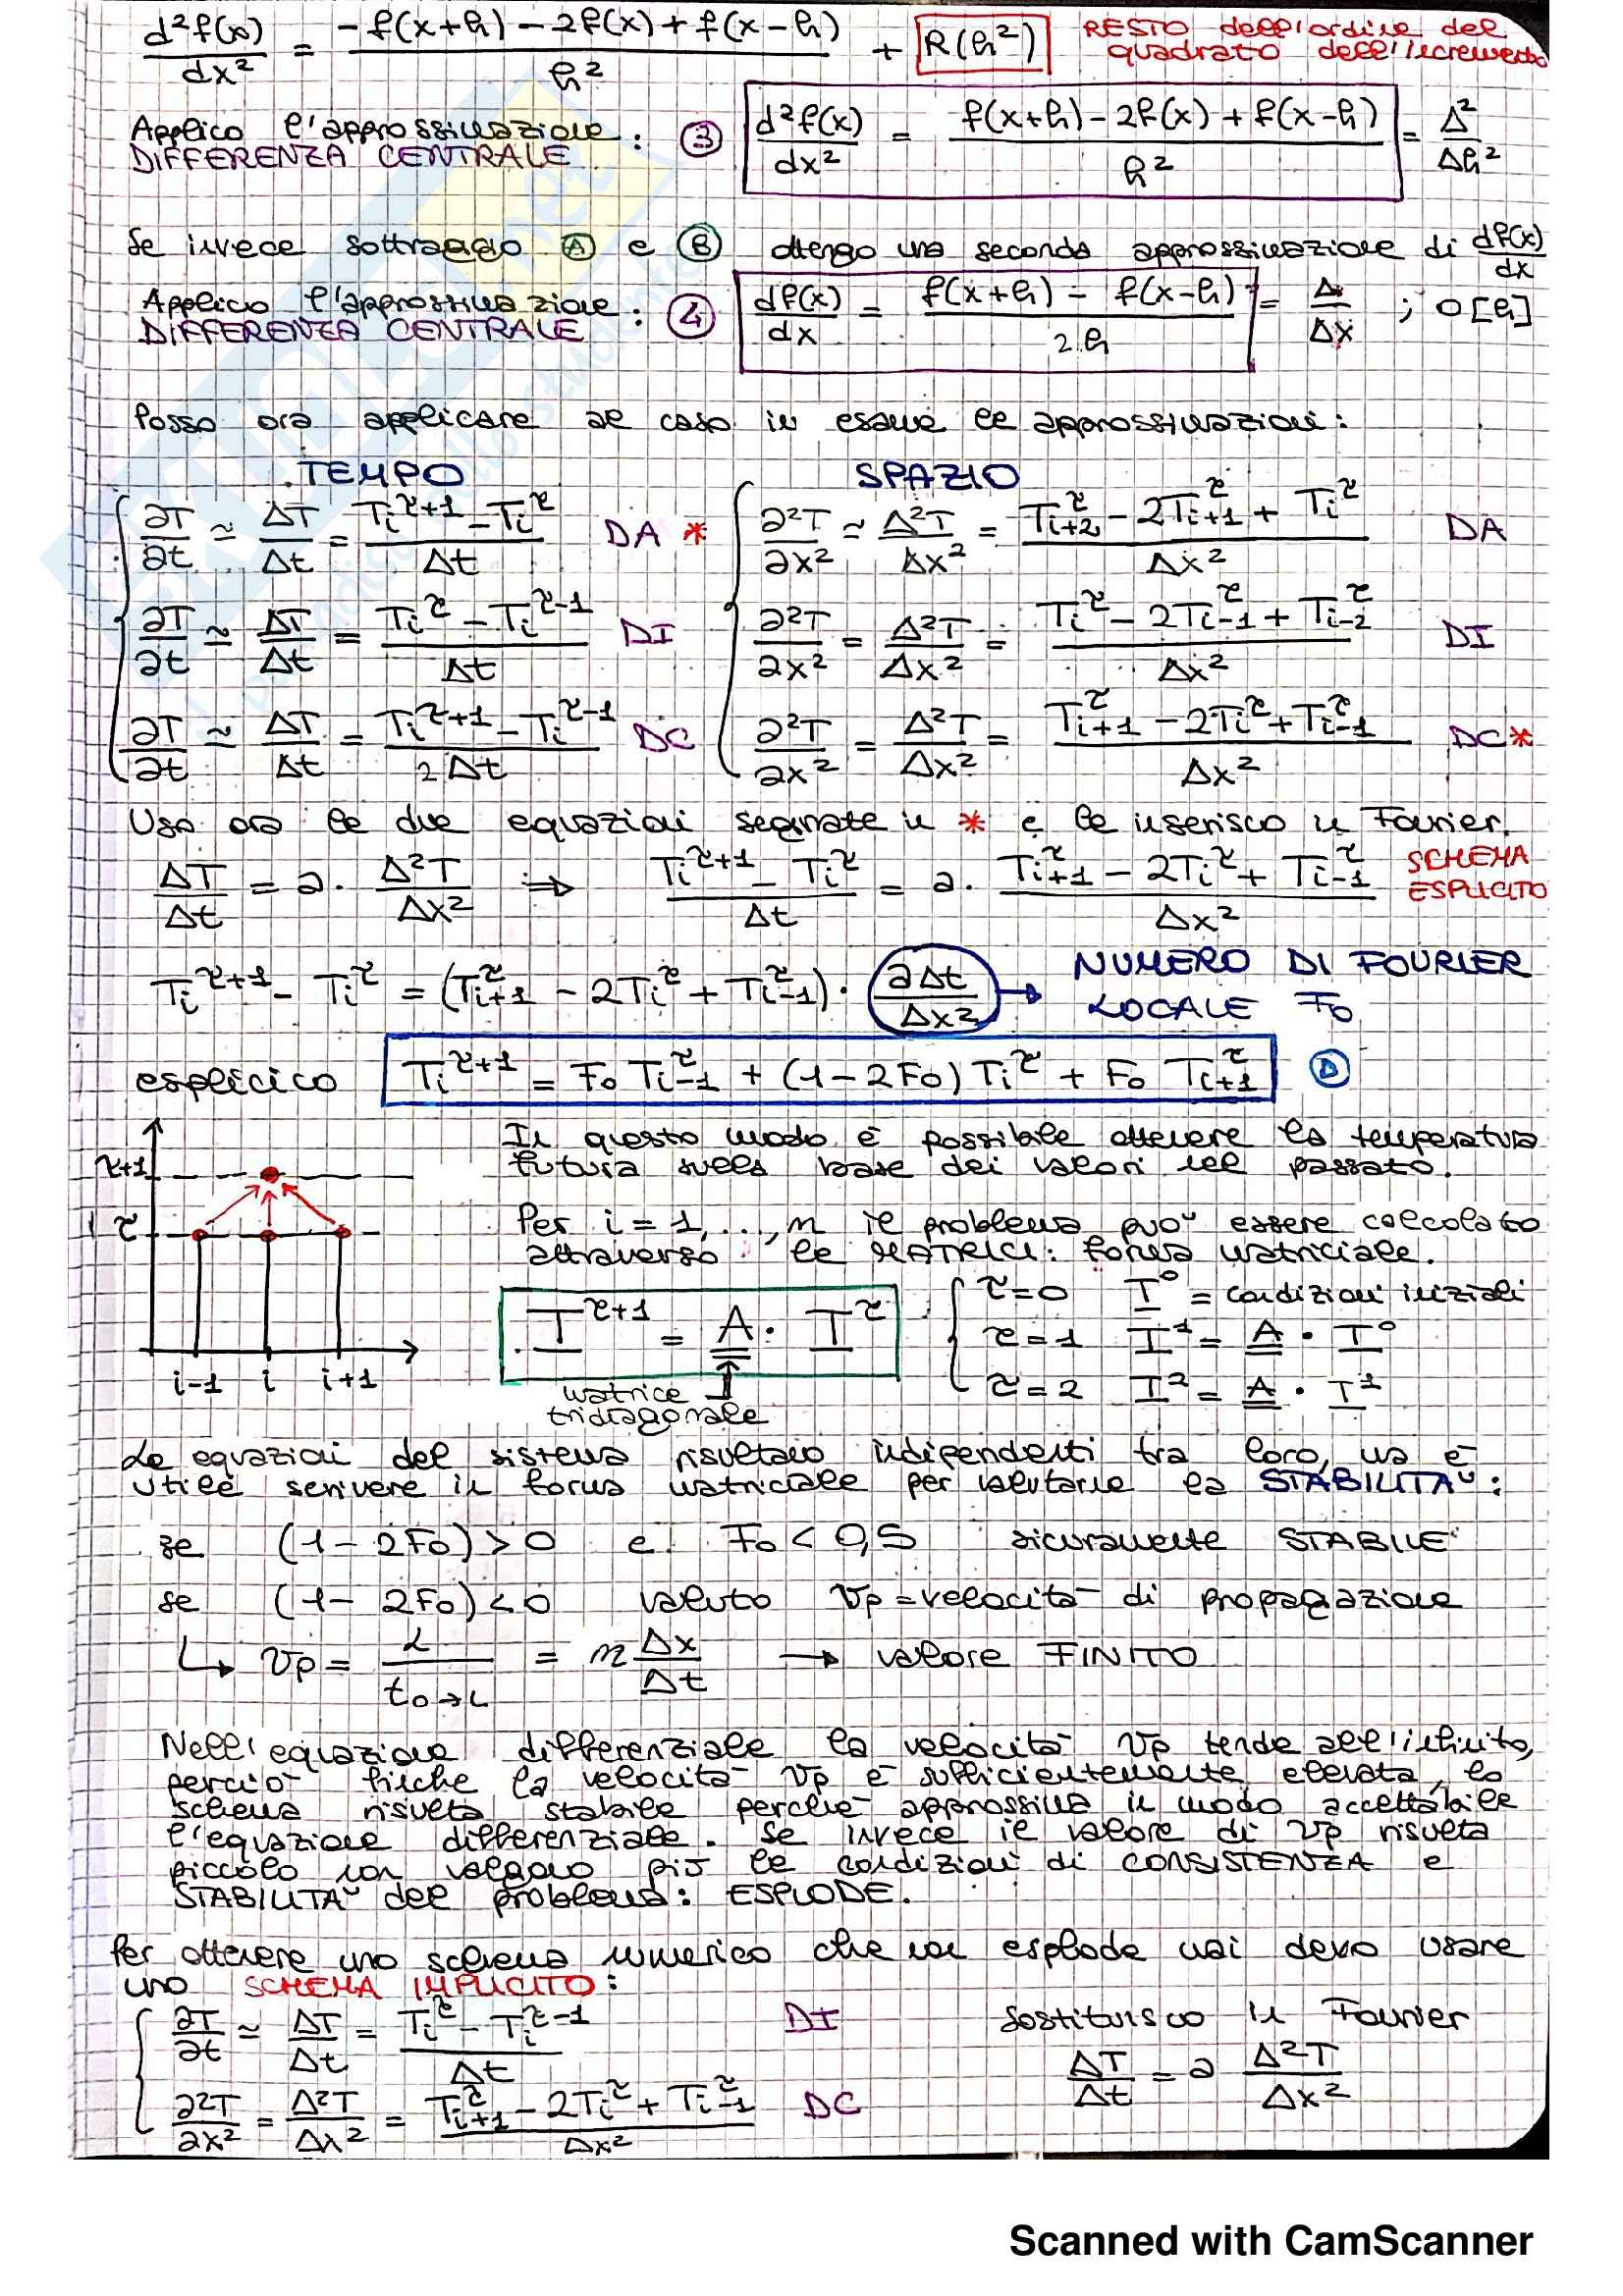 d²f(x)/dx² = (-f(x+h) - 2f(x) + f(x-h))/h² + R(h²) RESTO dell'ordine del quadrato dell'incremento
Applico l'approssimazione DIFFERENZA CENTRALE : ③ d²f(x)/dx² = (f(x+h) - 2f(x) + f(x-h))/h² = Δ²/Δh²
Se invece sottraggo Ⓐ e Ⓑ ottengo una seconda approssimazione di df(x)/dx
Applico l'approssimazione DIFFERENZA CENTRALE : ④ df(x)/dx = (f(x+h) - f(x-h))/(2h) = Δ/Δx ; O[h]
Posso ora applicare al caso in esame le approssimazioni:
TEMPO SPAZIO
∂T/∂t ≃ ΔT/Δt = (Ti^τ+1 - Ti^τ)/Δt DA * ∂²T/∂x² ≃ Δ²T/Δx² = (Ti+2^τ - 2Ti+1^τ + Ti^τ)/Δx² DA
∂T/∂t ≃ ΔT/Δt = (Ti^τ - Ti^τ-1)/Δt DI ∂²T/∂x² = Δ²T/Δx² = (Ti^τ - 2Ti-1^τ + Ti-2^τ)/Δx² DI
∂T/∂t ≃ ΔT/Δt = (Ti^τ+1 - Ti^τ-1)/(2Δt) DC ∂²T/∂x² = Δ²T/Δx² = (Ti+1^τ - 2Ti^τ + Ti-1^τ)/Δx² DC*
Uso ora le due equazioni segnate in * e le inserisco in Fourier.
ΔT/Δt = a · Δ²T/Δx² ⇒ (Ti^τ+1 - Ti^τ)/Δt = a · (Ti+1^τ - 2Ti^τ + Ti-1^τ)/Δx² SCHEMA ESPLICITO
Ti^τ+1 - Ti^τ = (Ti+1^τ - 2Ti^τ + Ti-1^τ) · aΔt/Δx² → NUMERO DI FOURIER LOCALE Fo
esplicico Ti^τ+1 = Fo Ti-1^τ + (1-2Fo) Ti^τ + Fo Ti+1^τ Ⓓ
In questo modo è possibile ottenere la temperatura
futura sulla base dei valori nel passato.
τ+1
τ
i-1 i i+1
Per i = 1, ..., n il problema può essere calcolato
attraverso le MATRICI: forma matriciale.
T^τ+1 = A · T^τ
matrice
tridiagonale
τ=0 T⁰ = condizioni iniziali
τ=1 T¹ = A · T⁰
τ=2 T² = A · T¹
Le equazioni del sistema risultano indipendenti tra loro, ma è
utile scrivere in forma matriciale per valutarne la STABILITÀ:
se (1-2Fo)>0 e Fo<0,5 sicuramente STABILE
se (1-2Fo)<0 valuto vp = velocità di propagazione
↳ vp = L/t0→L = n Δx/Δt → valore FINITO
Nell'equazione differenziale la velocità vp tende all'infinito,
perciò finche la velocità vp è sufficientemente elevata, lo
schema risulta stabile perchè approssima in modo accettabile
l'equazione differenziale. Se invece il valore di vp risulta
piccolo non valgono più le condizioni di CONSISTENZA e
STABILITÀ del problema: ESPLODE.
Per ottenere uno schema numerico che non esplode mai devo usare
uno SCHEMA IMPLICITO:
∂T/∂t ≃ ΔT/Δt = (Ti^τ - Ti^τ-1)/Δt DI
∂²T/∂x² = Δ²T/Δx² = (Ti+1^τ - 2Ti^τ + Ti-1^τ)/Δx² DC
Sostituisco in Fourier
ΔT/Δt = a Δ²T/Δx²
Scanned with CamScanner